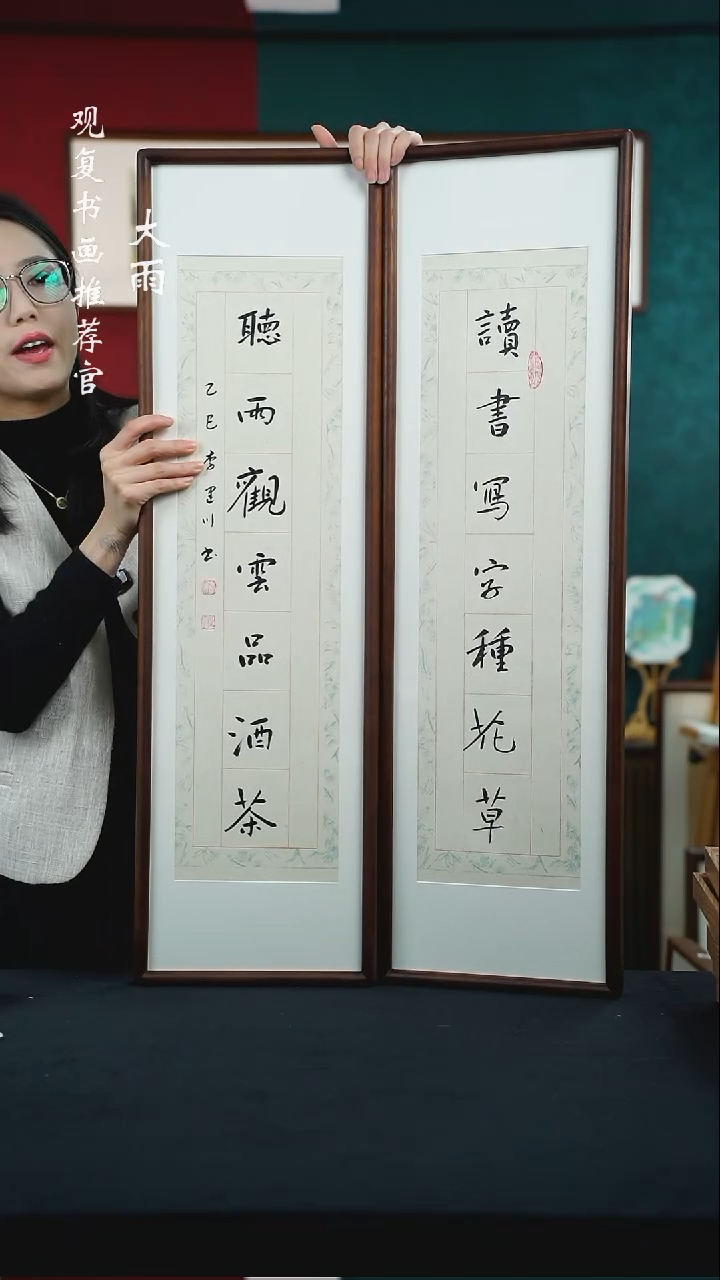 观复书画推荐官
大雨
讀書寫字種花草
聽雨觀雲品酒茶
乙巳李里川书